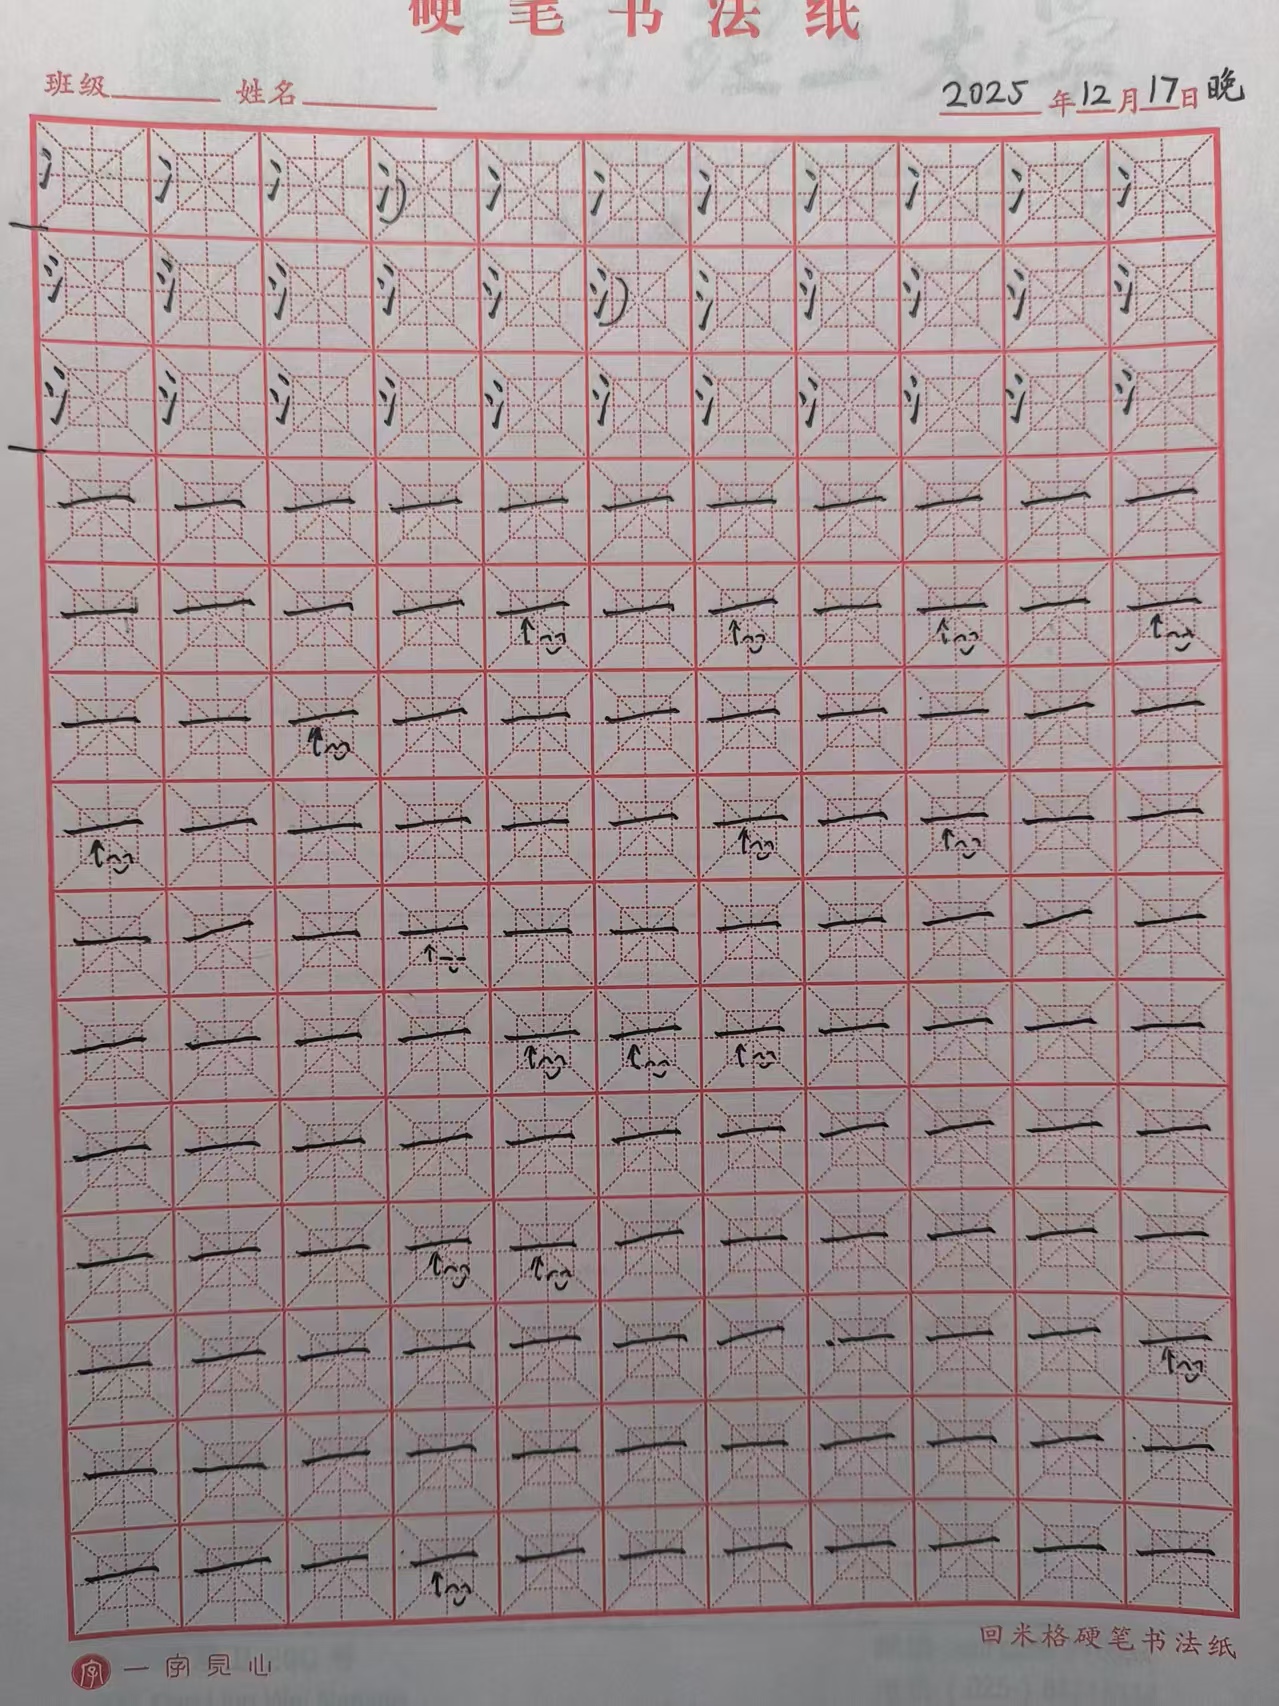 硬笔书法纸
班级 姓名 2025年12月17日晚
冫 冫 冫 冫 冫 冫 冫 冫 冫 冫 冫
氵 氵 氵 氵 氵 氵 氵 氵 氵 氵 氵
氵 氵 氵 氵 氵 氵 氵 氵 氵 氵 氵
一 一 一 一 一 一 一 一 一 一 一
一 一 一 一 一 一 一 一 一 一 一
一 一 一 一 一 一 一 一 一 一 一
一 一 一 一 一 一 一 一 一 一 一
一 一 一 一 一 一 一 一 一 一 一
一 一 一 一 一 一 一 一 一 一 一
一 一 一 一 一 一 一 一 一 一 一
一 一 一 一 一 一 一 一 一 一 一
一 一 一 一 一 一 一 一 一 一 一
一 一 一 一 一 一 一 一 一 一 一
一 一 一 一 一 一 一 一 一 一 一
回米格硬笔书法纸
字 一字見心